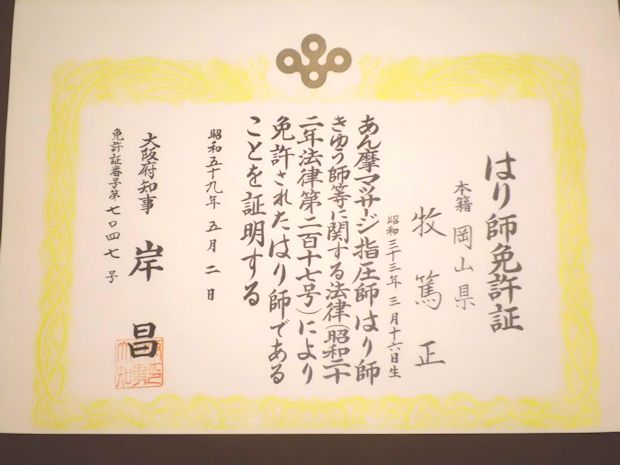 はり師免許証
本籍 岡山県
牧 篤正
昭和三十三年三月十六日生
あん摩マッサージ指圧師はり師
きゅう師等に関する法律(昭和二十
二年法律第二百十七号)により
免許されたはり師である
ことを証明する
昭和五十九年五月二日
大阪府知事 岸 昌
免許証番号第七〇四七号